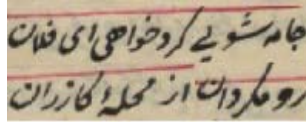 جامه شویی کرد خواهی ای فلان
رو مگردان از محلهٔ کازران